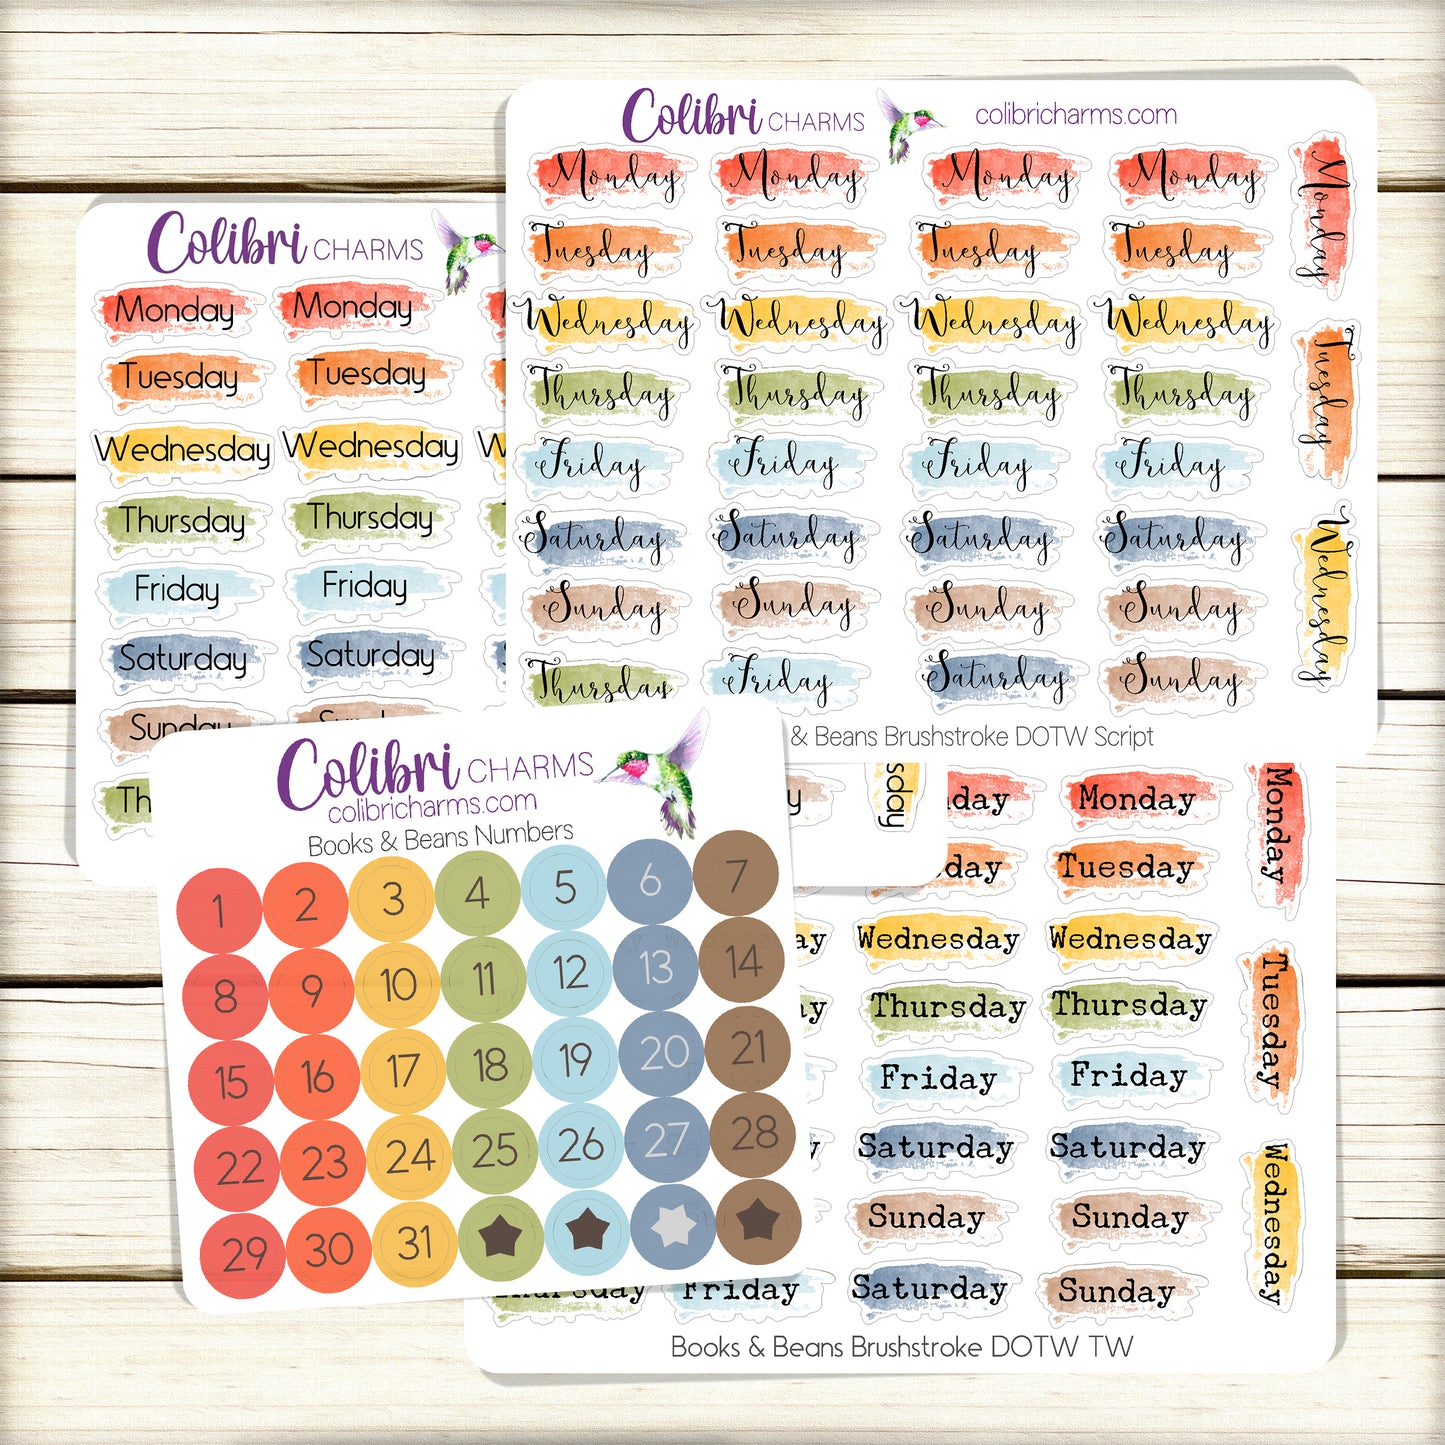 Colibri CHARMS colibricharms.com
Monday Monday Monday Monday Monday
Tuesday Tuesday Tuesday Tuesday
Wednesday Wednesday Wednesday Wednesday
Tuesday
Thursday Thursday Thursday Thursday
Friday Friday Friday Friday
Saturday Saturday Saturday Saturday
Wednesday
Sunday Sunday Sunday Sunday
Thursday Friday Saturday Sunday
& Beans Brushstroke DOTW Script
Colibri CHARMS
Monday Monday
Tuesday Tuesday
Wednesday Wednesday
Thursday Thursday
Friday Friday
Saturday Saturday
Sunday
Th
Colibri CHARMS
colibricharms.com
Books & Beans Numbers
1 2 3 4 5 6 7
8 9 10 11 12 13 14
15 16 17 18 19 20 21
22 23 24 25 26 27 28
29 30 31
sday
day Monday Monday
day Tuesday
ay Wednesday Wednesday
Tuesday
Thursday Thursday
Friday Friday
Saturday Saturday
Wednesday
Sunday Sunday
Thursday Friday Saturday Sunday
Books & Beans Brushstroke DOTW TW